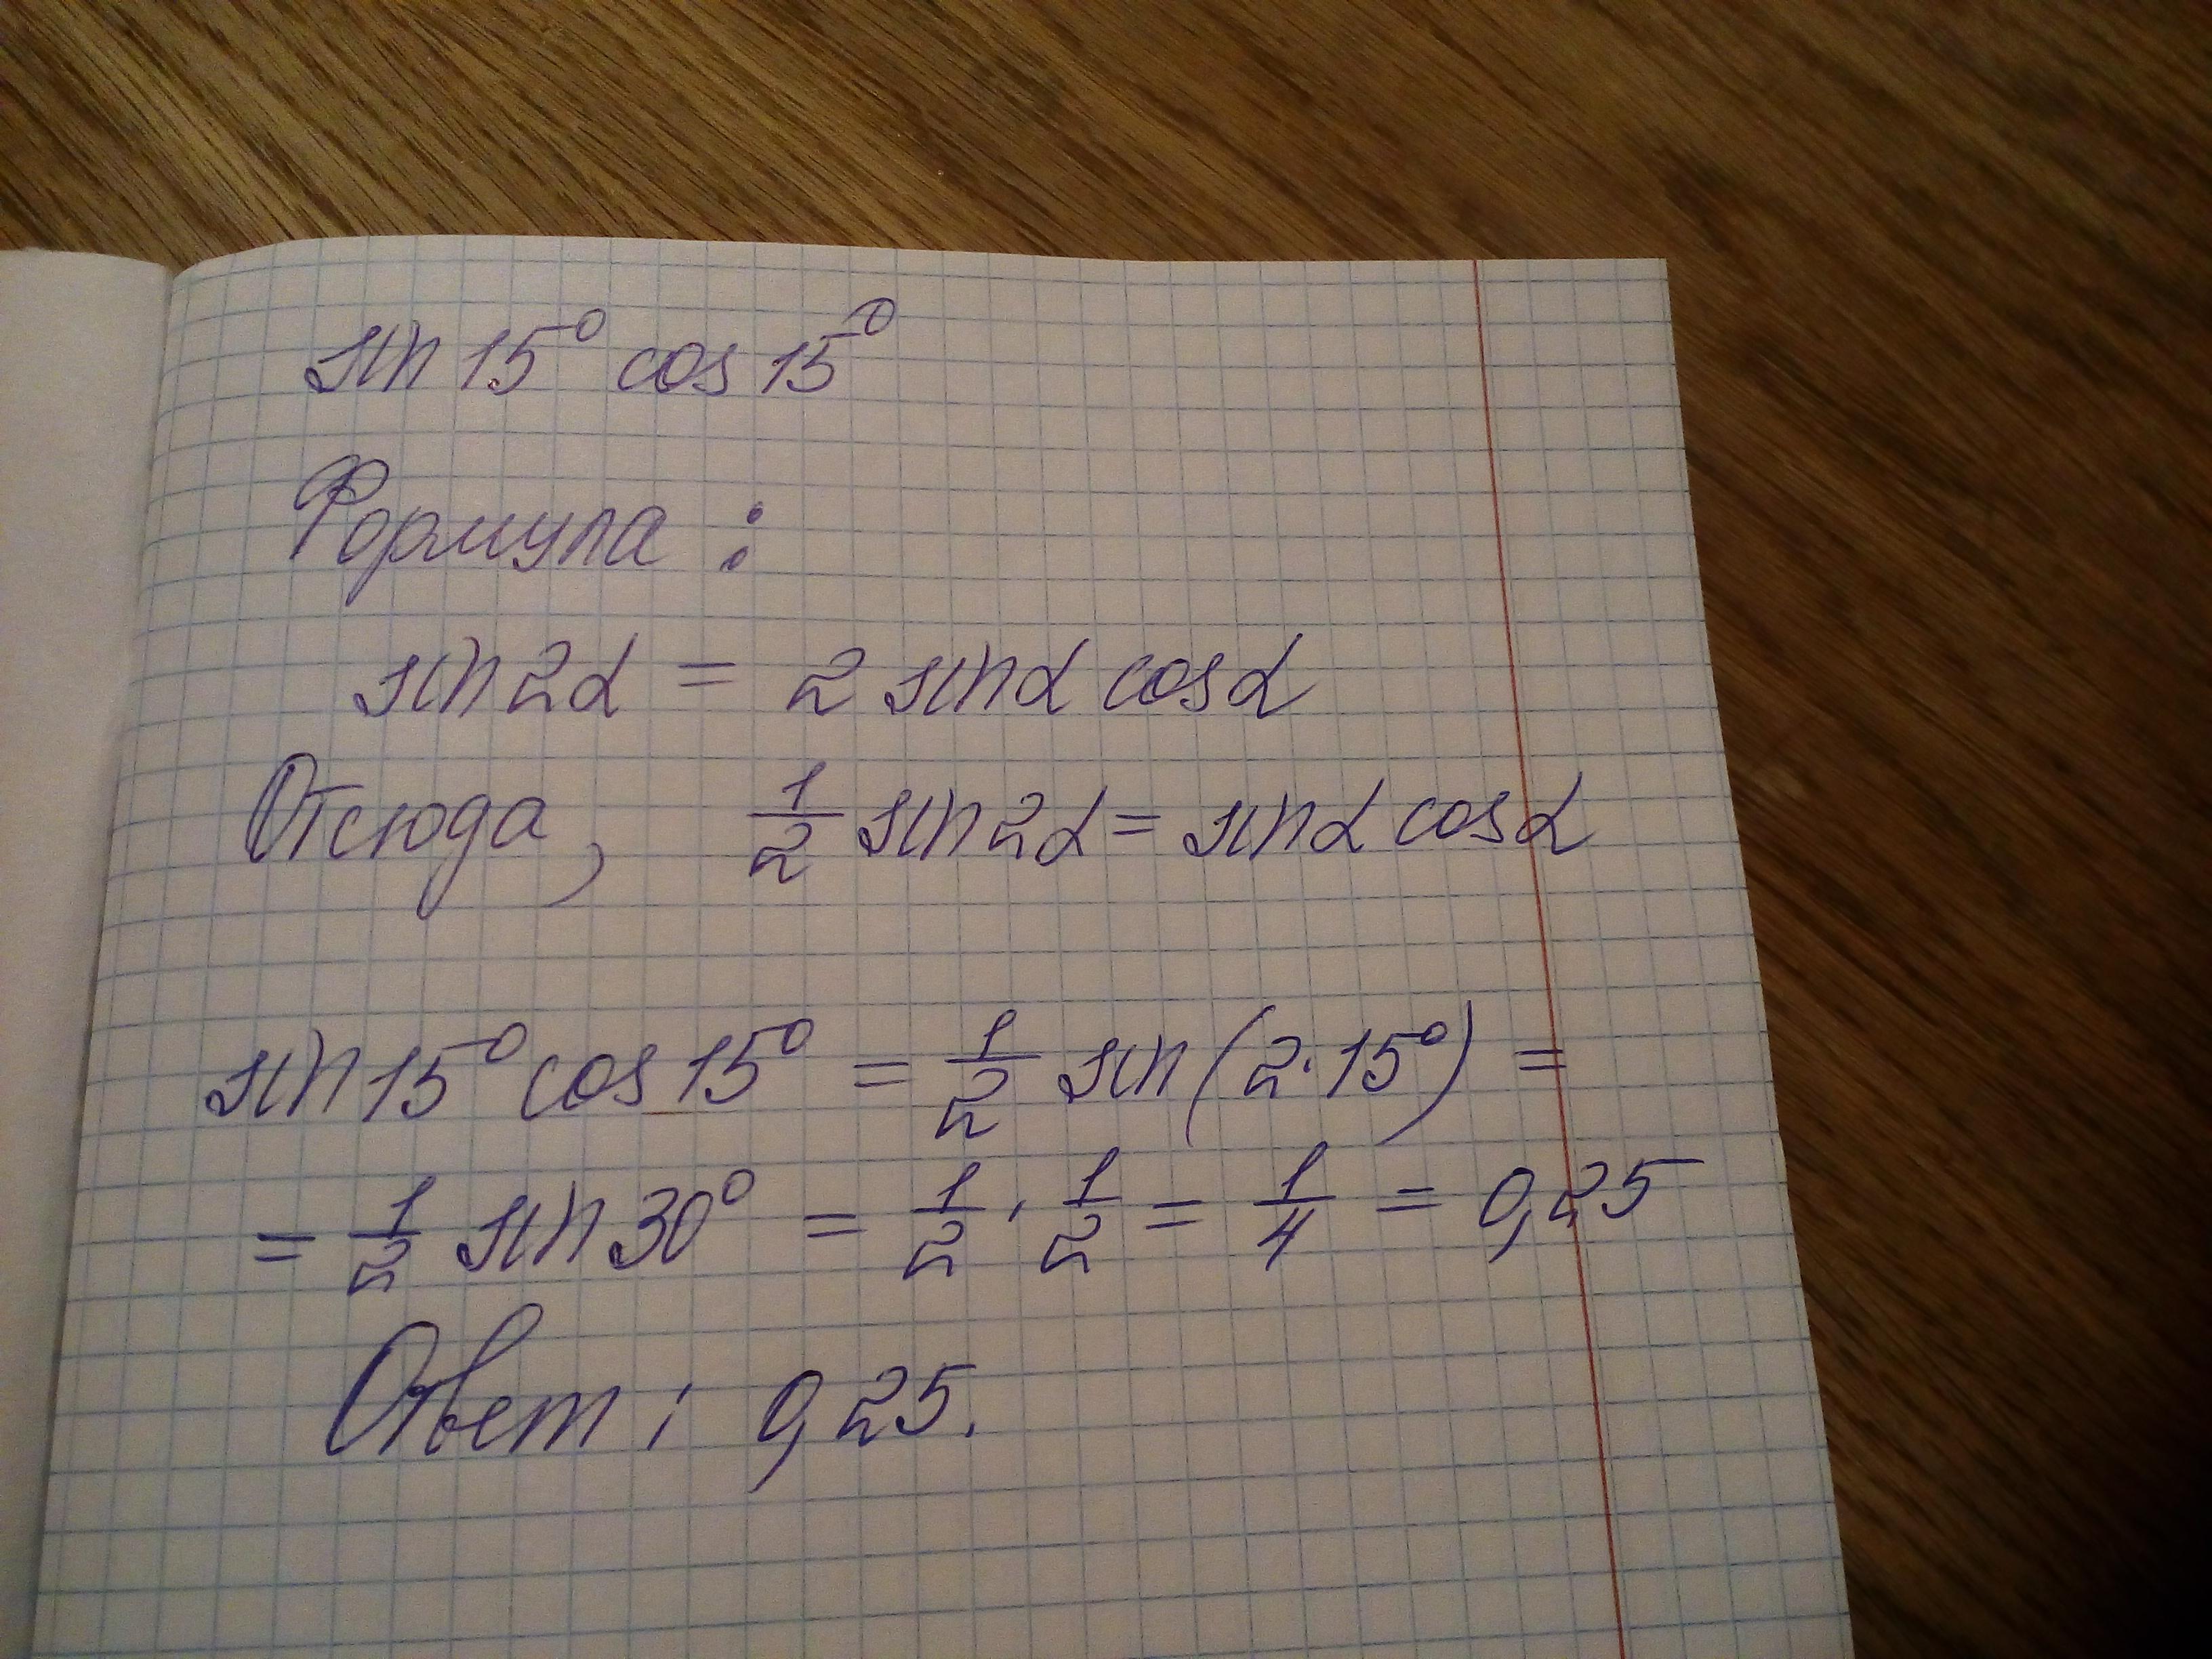 sin 15° cos 15°
Формула :
sin 2α = 2 sin α cos α
Отсюда, 1/2 sin 2α = sin α cos α
sin 15° cos 15° = 1/2 sin (2·15°) =
= 1/2 sin 30° = 1/2 · 1/2 = 1/4 = 0,25
Ответ : 0,25.